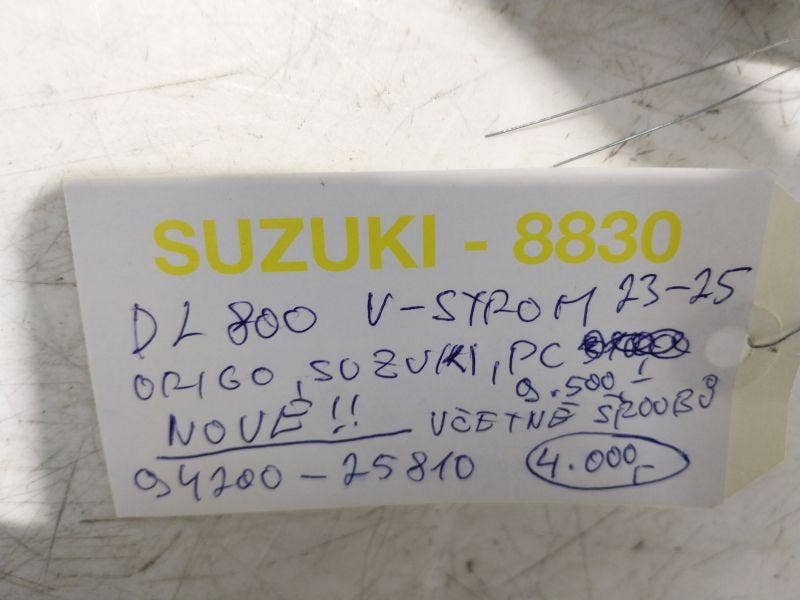 SUZUKI - 8830
DL 800 V-STROM 23-25
ORIGO, SUZUKI, PC
9.500,-
NOVÉ!! VČETNĚ ŠROUBŮ
94200-25810 4.000,-